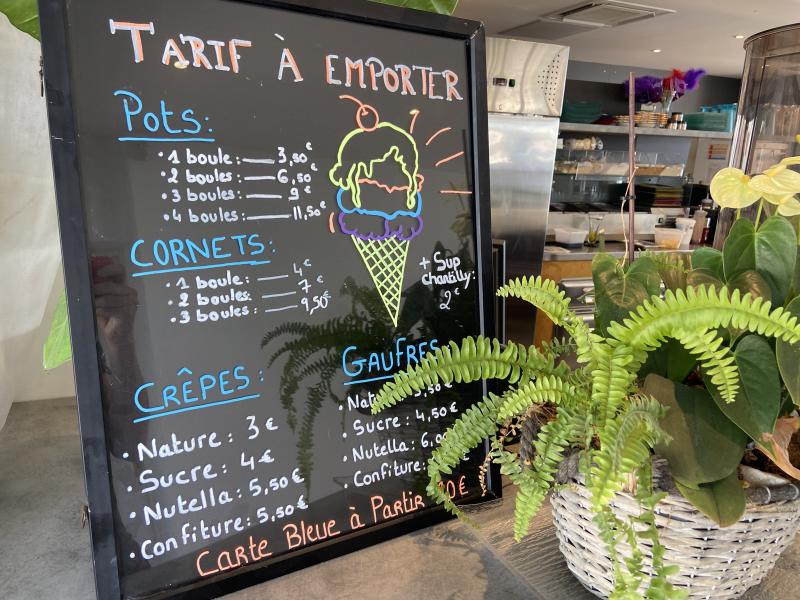 TARIF À EMPORTER
Pots:
• 1 boule: 3,50€
• 2 boules: 6,50€
• 3 boules: 9€
• 4 boules: 11,50€
CORNETS:
• 1 boule: 4€
• 2 boules: 7€
• 3 boules: 9,50€
+ Sup
chantilly:
2€
CRÊPES:
• Nature: 3€
• Sucre: 4€
• Nutella: 5,50€
• Confiture: 5,50€
GAUFRES
• Sucre: 4,50€
• Nutella:
• Confiture:
Carte Bleue à Partir